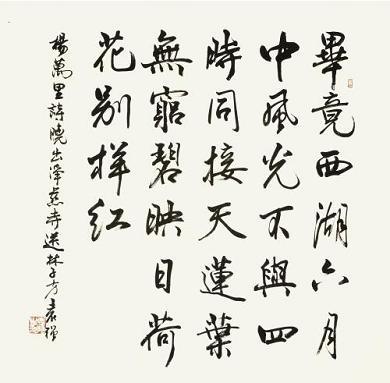 畢竟西湖六月
中風光不與四
時同接天蓮葉
無窮碧映日荷
花別樣紅
楊萬里詩曉出淨慈寺送林子方